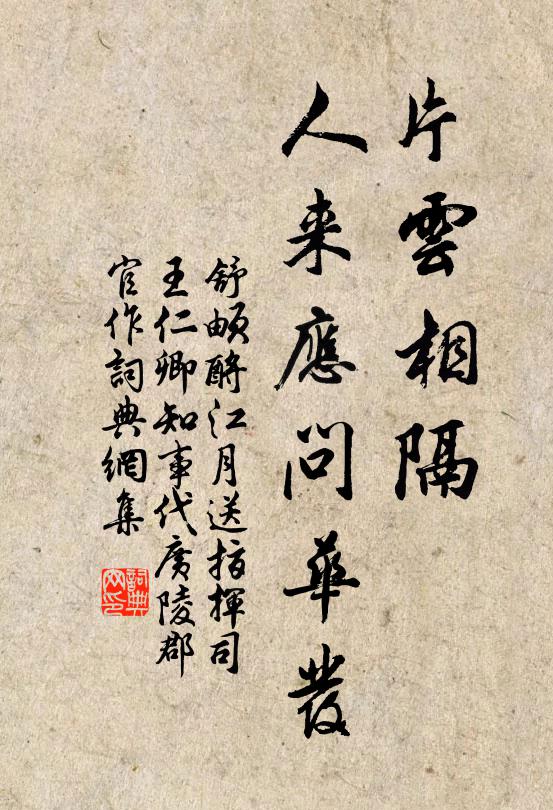 片雲相隔
人来應問華發
舒頔酹江月送指揮司
王仁卿知事代廣陵郡
官作詞典網集
詞典
网印